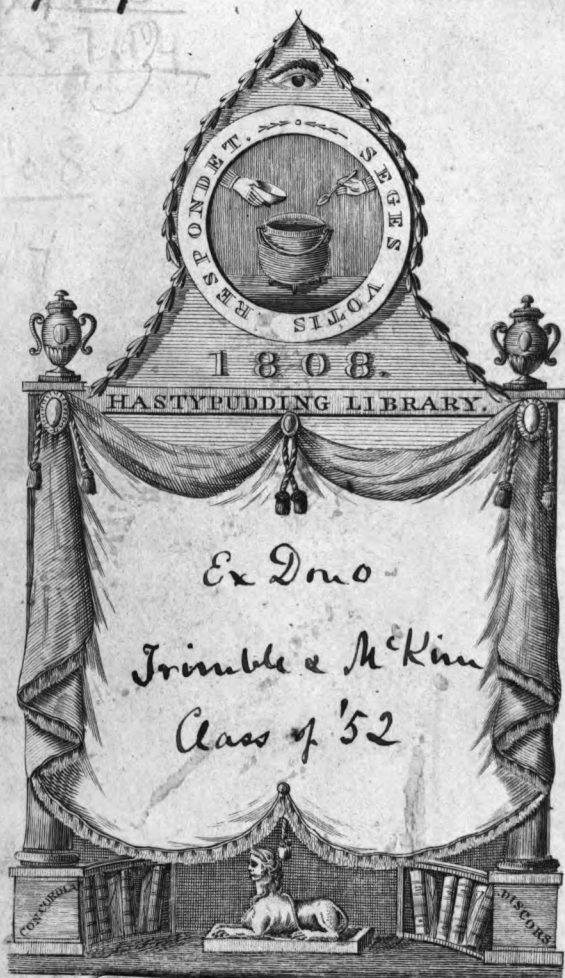 SEGES VOTIS RESPONDET.
1808.
HASTYPUDDING LIBRARY.
Ex Dono
Trimble & McKim
Class of '52
CONCORDIA
DISCORS